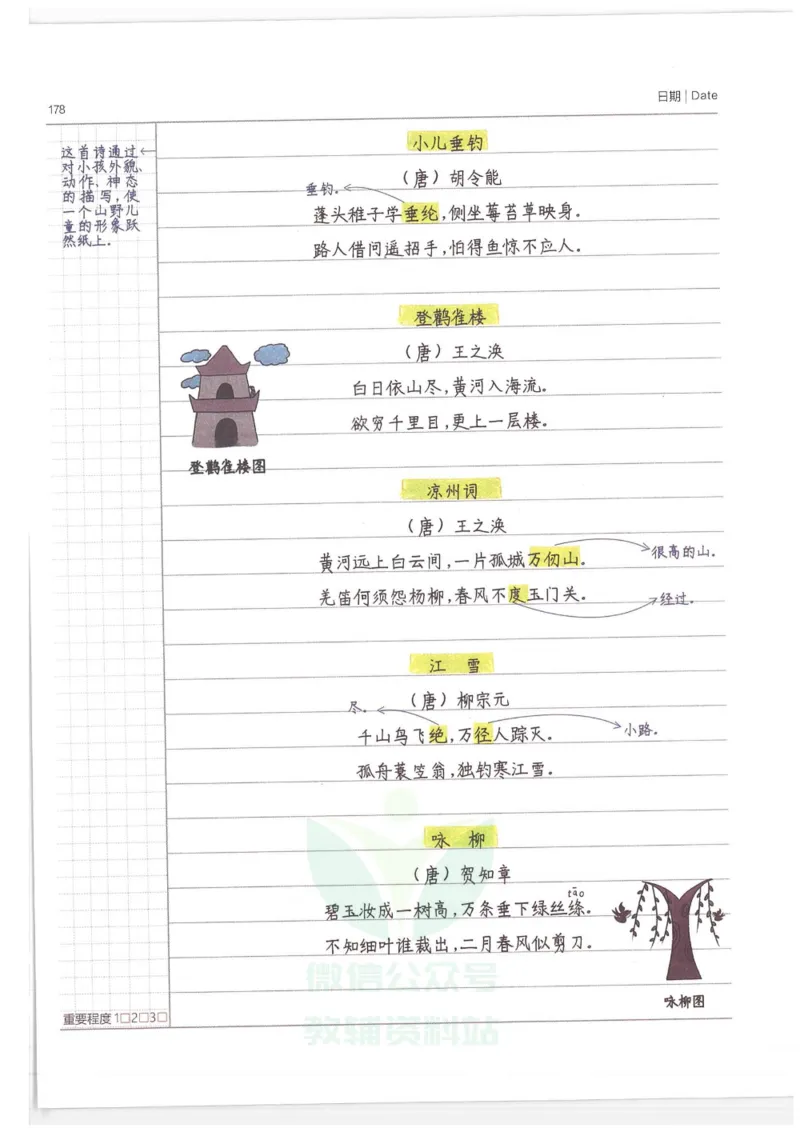 178
日期 | Date
这首诗通过
对小孩外貌、
动作、神态
的描写,使
一个山野儿
童的形象跃
然纸上。
小儿垂钓
(唐)胡令能
垂钓。
蓬头稚子学垂纶,侧坐莓苔草映身。
路人借问遥招手,怕得鱼惊不应人。
登鹳雀楼
(唐)王之涣
白日依山尽,黄河入海流。
欲穷千里目,更上一层楼。
登鹳雀楼图
凉州词
(唐)王之涣
黄河远上白云间,一片孤城万仞山。
很高的山。
羌笛何须怨杨柳,春风不度玉门关。
经过。
江 雪
(唐)柳宗元
尽。
千山鸟飞绝,万径人踪灭。
小路。
孤舟蓑笠翁,独钓寒江雪。
咏 柳
(唐)贺知章
tāo
碧玉妆成一树高,万条垂下绿丝绦。
不知细叶谁裁出,二月春风似剪刀。
咏柳图
微信公众号
教辅资料站
重要程度 1□2□3□